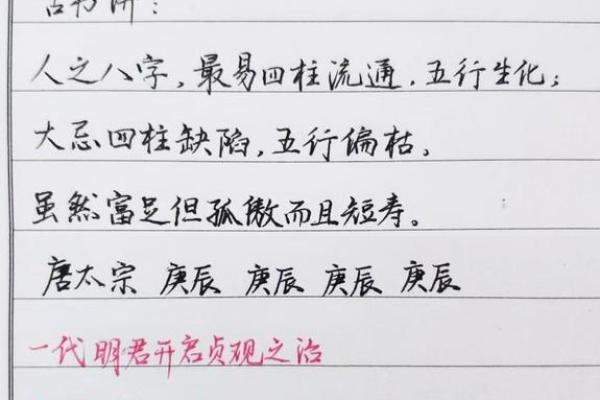 古书讲：
人之八字，最易四柱流通，五行生化；
大忌四柱缺陷，五行偏枯，
虽然富足但孤傲而且短寿。
唐太宗 庚辰 庚辰 庚辰 庚辰
一代明君开启贞观之治